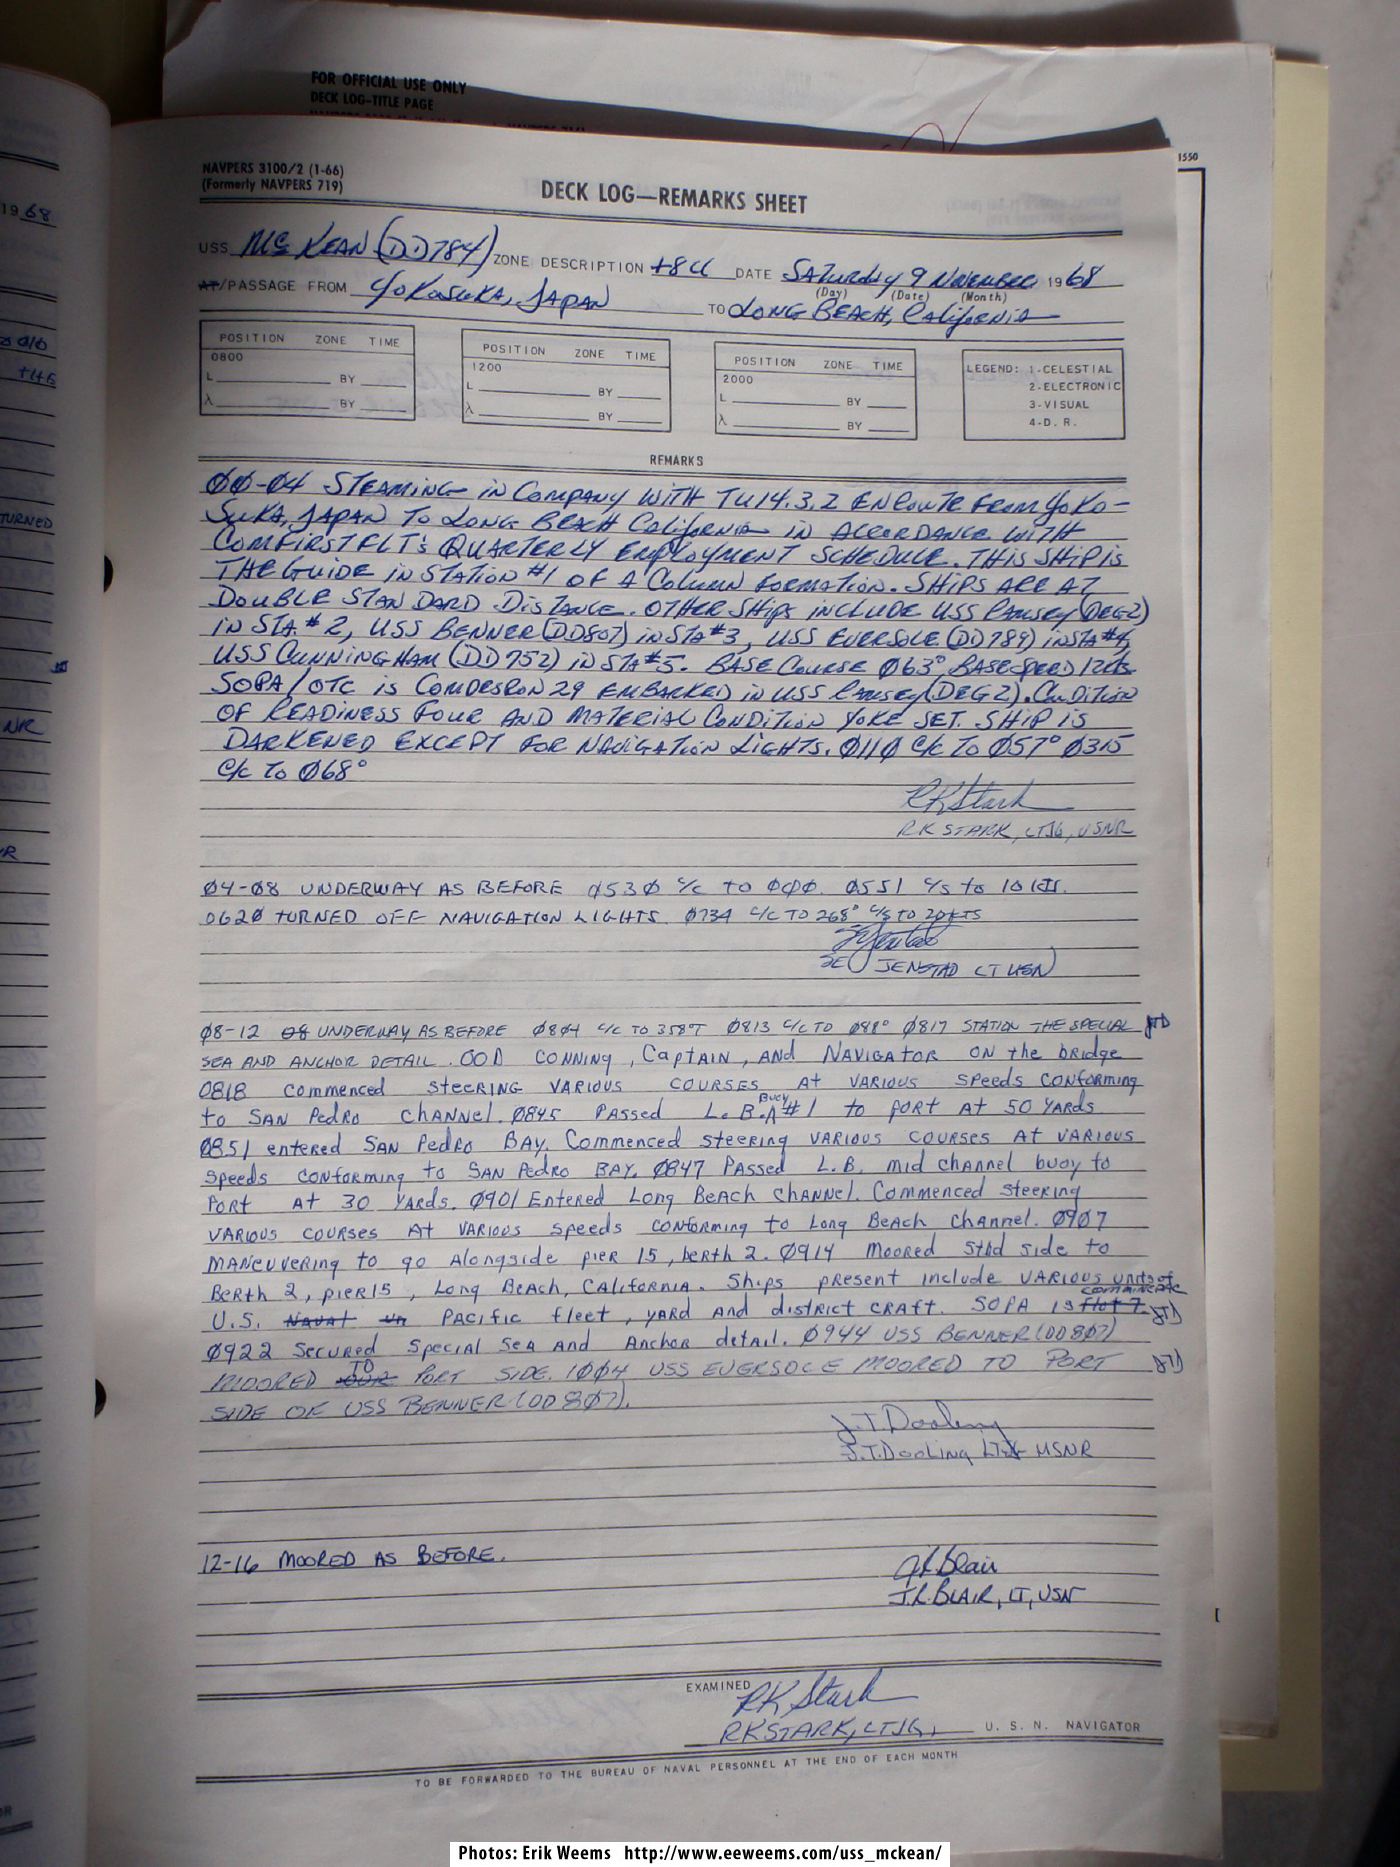 FOR OFFICIAL USE ONLY
DECK LOG—TITLE PAGE
1550
NAVPERS 3100/2 (1-66)
(Formerly NAVPERS 719)
DECK LOG—REMARKS SHEET
1968
USS McKEAN (DD784) ZONE DESCRIPTION +8U DATE SATURDAY 9 NOVEMBER 1968
(Day) (Date) (Month)
AT/PASSAGE FROM YOKOSUKA, JAPAN TO LONG BEACH, CALIFORNIA
POSITION ZONE TIME
0800
L BY
λ BY
POSITION ZONE TIME
1200
L BY
λ BY
POSITION ZONE TIME
2000
L BY
λ BY
LEGEND: 1-CELESTIAL
2-ELECTRONIC
3-VISUAL
4-D. R.
REMARKS
00-04 STEAMING in COMPANY WITH TU14.3.2 ENROUTE FROM YOKO-
SUKA, JAPAN TO LONG BEACH California in ACCORDANCE WITH
COMFIRSTFLT's QUARTERLY EMPLOYMENT SCHEDULE. THIS SHIP IS
THE GUIDE IN STATION #1 OF A COLUMN FORMATION. SHIPS ARE AT
DOUBLE STANDARD DISTANCE. OTHER SHIPS INCLUDE USS RAMSEY (DEG2)
IN STA #2, USS BENNER (DD807) in STA #3, USS EVERSOLE (DD789) in STA #4,
USS CUNNINGHAM (DD752) in STA #5. BASE COURSE 063° BASE SPEED 12kts
SOPA/OTC is COMDESRON 29 EMBARKED in USS RAMSEY (DEG2). CONDITION
OF READINESS FOUR AND MATERIAL CONDITION YOKE SET. SHIP IS
DARKENED EXCEPT FOR NAVIGATION LIGHTS. 0110 C/C TO 057° 0315
C/C TO 068°
RK Stark
RK STARK, LTJG, USNR
04-08 UNDERWAY AS BEFORE 0530 C/C TO 060. 0551 C/S to 10 KTS.
0620 TURNED OFF NAVIGATION LIGHTS. 0734 C/C TO 268° C/S TO 20 KTS
JENSTAD LT USN
08-12 08 UNDERWAY AS BEFORE 0804 C/C TO 358°T 0813 C/C TO 088° 0817 STATION THE SPECIAL JTD
SEA AND ANCHOR DETAIL. OOD CONNING, CAPTAIN, AND NAVIGATOR ON the bridge
0818 commenced steering VARIOUS COURSES At VARIOUS speeds conforming
to SAN Pedro Channel. 0845 Passed L.B. Buoy A #1 to port at 50 YARDS
0851 entered SAN Pedro BAY. Commenced steering VARIOUS COURSES At VARIOUS
speeds conforming to SAN Pedro BAY. 0847 Passed L.B. mid channel buoy to
Port At 30 YARDS. 0901 Entered Long Beach Channel. Commenced steering
VARIOUS COURSES At VARIOUS speeds conforming to Long Beach Channel. 0907
MANEUVERING to go Alongside pier 15, berth 2. 0914 moored stbd side to
Berth 2, pier 15, Long Beach, CALIFORNIA. Ships present include VARIOUS units of
U.S. Naval un PACIFIC fleet, YARD AND district CRAFT. SOPA is flot 7 JTD
0922 Secured Special Sea And Anchor detail. 0944 USS BENNER (DD807)
MOORED OUR TO PORT SIDE. 1004 USS EVERSOLE MOORED TO PORT JTD
SIDE OF USS BENNER (DD 807).
J.T. Dooling
J.T. Dooling LTJG USNR
12-16 MOORED AS BEFORE.
J R Blair
J.R. BLAIR, LT, USN
EXAMINED
RK Stark
RK STARK, LTJG, U. S. N. NAVIGATOR
TO BE FORWARDED TO THE BUREAU OF NAVAL PERSONNEL AT THE END OF EACH MONTH
Photos: Erik Weems http://www.eeweems.com/uss_mckean/